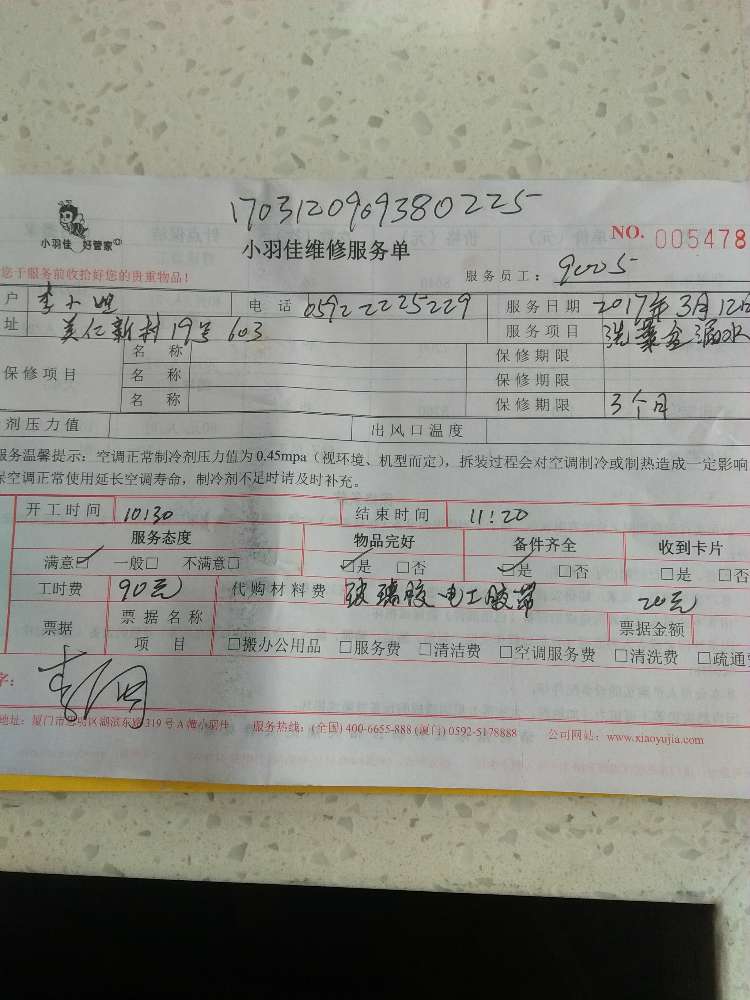 1703120969380225
小羽佳 好管家
小羽佳维修服务单
NO. 005478
您于服务前收拾好您的贵重物品!
服务员工: 9005
户 李 电话 0592 2225229 服务日期 2017年3月12日
址 美仁新村19号603 服务项目 洗 盆漏水
保修项目
名称 保修期限
名称 保修期限
名称 保修期限 3个月
剂压力值 出风口温度
服务温馨提示:空调正常制冷剂压力值为0.45mpa(视环境、机型而定),拆装过程会对空调制冷或制热造成一定影响
保空调正常使用延长空调寿命,制冷剂不足时请及时补充。
开工时间 10:30 结束时间 11:20
服务态度 物品完好 备件齐全 收到卡片
满意☑ 一般□ 不满意□ ☑是 □否 ☑是 □否 □是 □否
工时费 90元 代购材料费 玻璃胶 电工胶带 20元
票据 票据名称 票据金额
项目 □搬办公用品 □服务费 □清洁费 □空调服务费 □清洗费 □疏通
字:
地址:厦门市思明区湖滨东路319号A 小羽佳 服务热线:(全国)400-6655-888(厦门)0592-5178888 公司网站:www.xiaoyujia.com